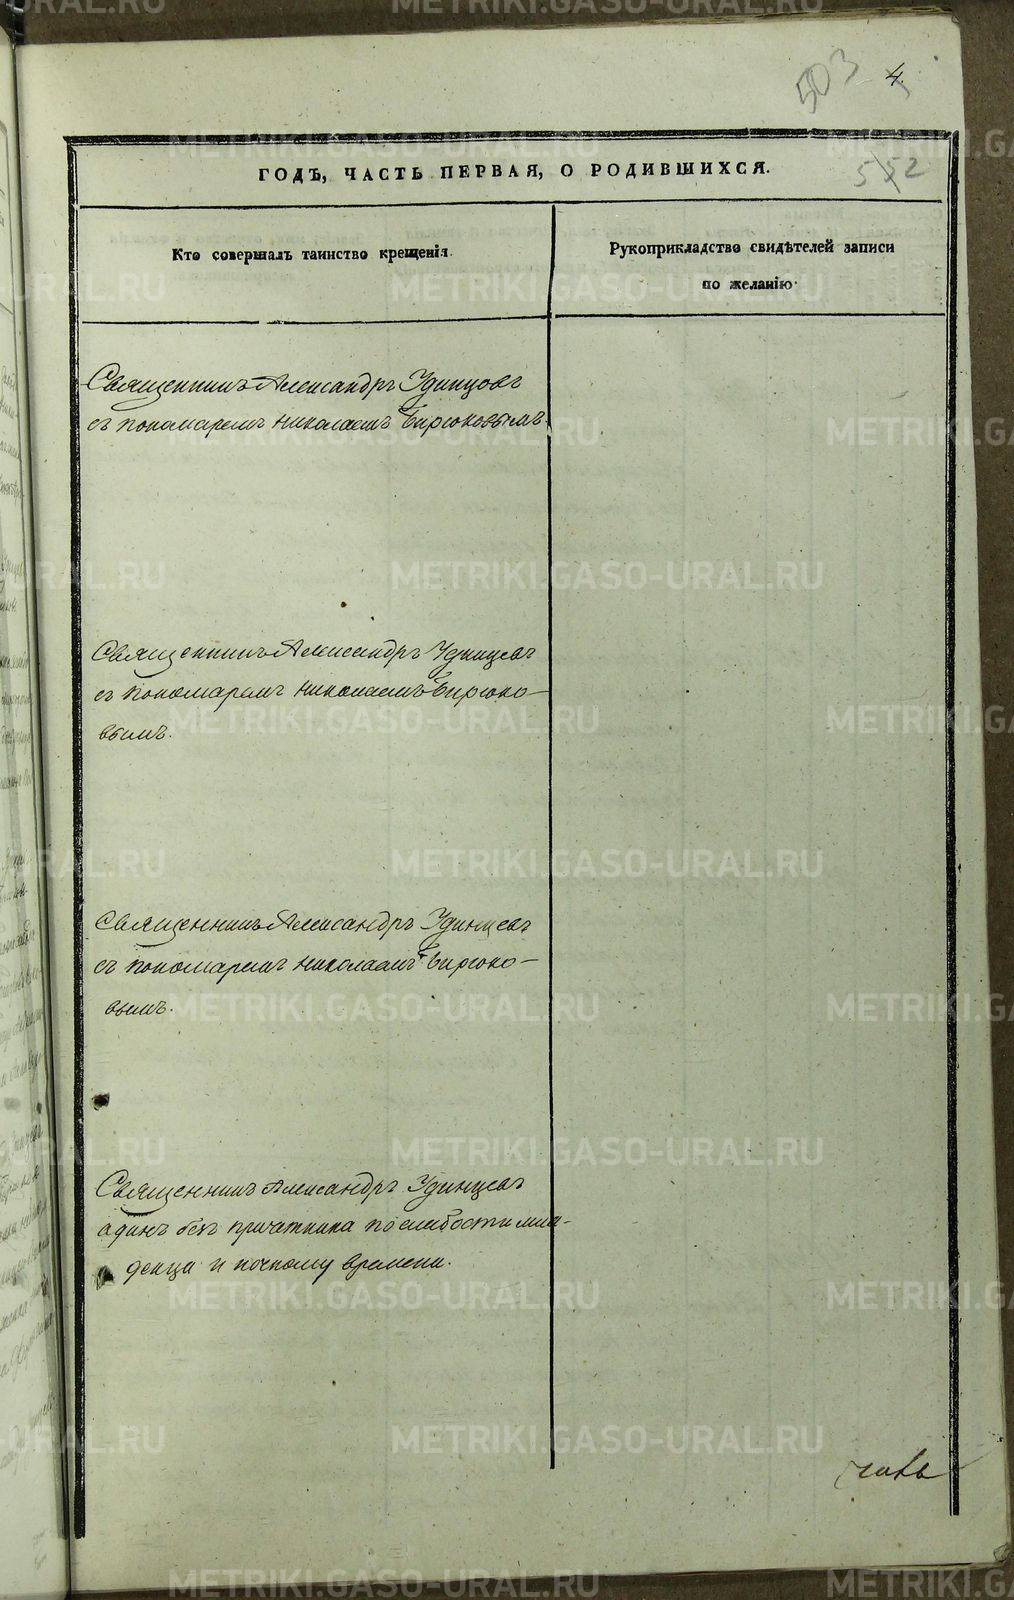 503
4.
552
ГОДЪ, ЧАСТЬ ПЕРВАЯ, О РОДИВШИХСЯ.
Кто совершалъ таинство крещенія.
Рукоприкладство свидѣтелей записи
по желанію.
Священникъ Александръ Удинцовъ
съ пономаремъ Николаемъ Бирюковымъ.
Священникъ Александръ Удинцевъ
съ пономаремъ Николаемъ Бирюко-
вымъ.
Священникъ Александръ Удинцевъ
съ пономаремъ Николаемъ Бирюко-
вымъ.
Священникъ Александръ Удинцевъ
адинъ безъ причетника по слабости мла-
денца и ночному времени.
METRIKI.GASO-URAL.RU